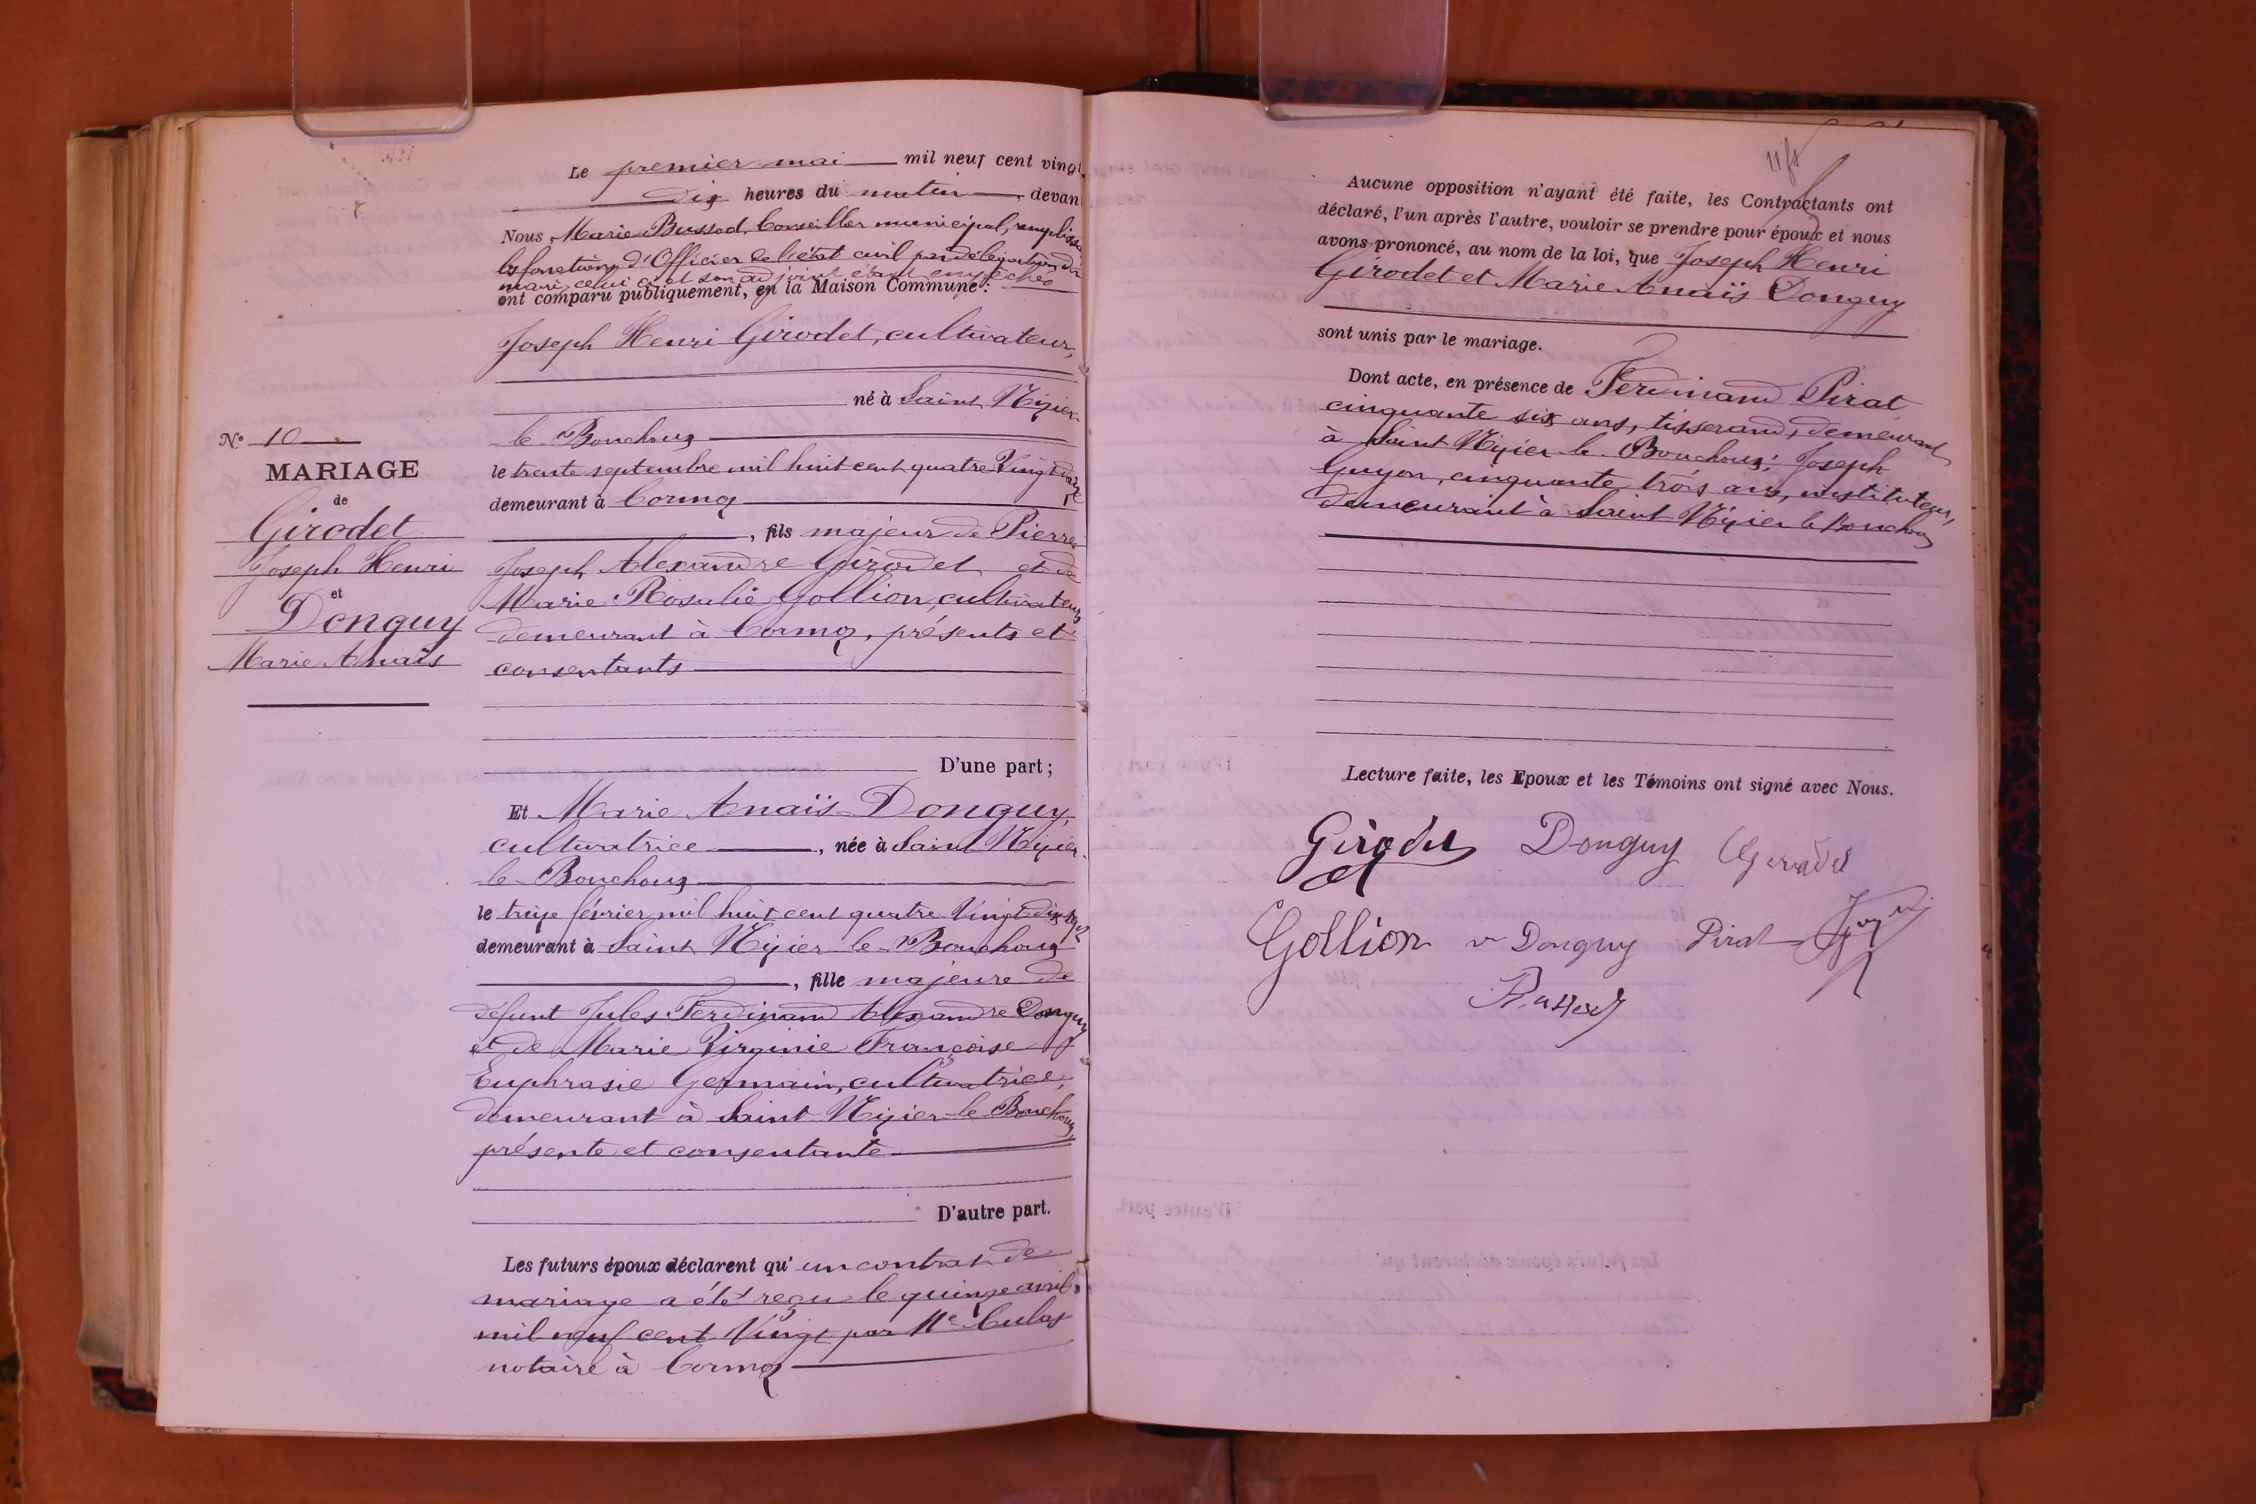 N° 10
MARIAGE
de
Girodet
Joseph Henri
et
Donguy
Marie Anaïs
Le premier mai mil neuf cent vingt
dix heures du matin, devan
Nous, Marie Bussod, Conseiller municipal, remplissa
les fonctions d'Officier de l'état civil par délégation du
maire, celui ci et son adjoint étant empêchés
ont comparu publiquement, en la Maison Commune:
Joseph Henri Girodet, cultivateur,
né à Saint Nizier
le Bouchoux
le trente septembre mil huit cent quatre Vingt
demeurant à Cormoz
, fils majeur de Pierre
Joseph Alexandre Girodet et de
Marie Rosalie Gollion, cultivateurs
demeurant à Cormoz, présents et
consentants
D'une part;
Et Marie Anaïs Donguy,
cultivatrice, née à Saint Nizier
le Bouchoux
le treize février mil huit cent quatre Vingt dix sept
demeurant à Saint Nizier le Bouchoux
, fille majeure de
défunt Jules Ferdinand Alexandre Donguy
et de Marie Virginie Françoise
Euphrasie Germain, cultivatrice,
demeurant à Saint Nizier le Bouchoux
présente et consentante
D'autre part.
Les futurs époux déclarent qu'un contrat de
mariage a été reçu le quinze avril
mil neuf cent Vingt par Me Culas
notaire à Cormoz
Aucune opposition n'ayant été faite, les Contractants ont
déclaré, l'un après l'autre, vouloir se prendre pour époux et nous
avons prononcé, au nom de la loi, que Joseph Henri
Girodet et Marie Anaïs Donguy
sont unis par le mariage.
Dont acte, en présence de Ferdinand Pirat
cinquante six ans, tisserand, demeurant
à Saint Nizier le Bouchoux; Joseph
Guyon, cinquante trois ans, instituteur,
demeurant à Saint Nizier le Bouchoux
Lecture faite, les Epoux et les Témoins ont signé avec Nous.
Girodet Donguy Girodet
Gollion v Donguy Pirat Guyon
Bussod